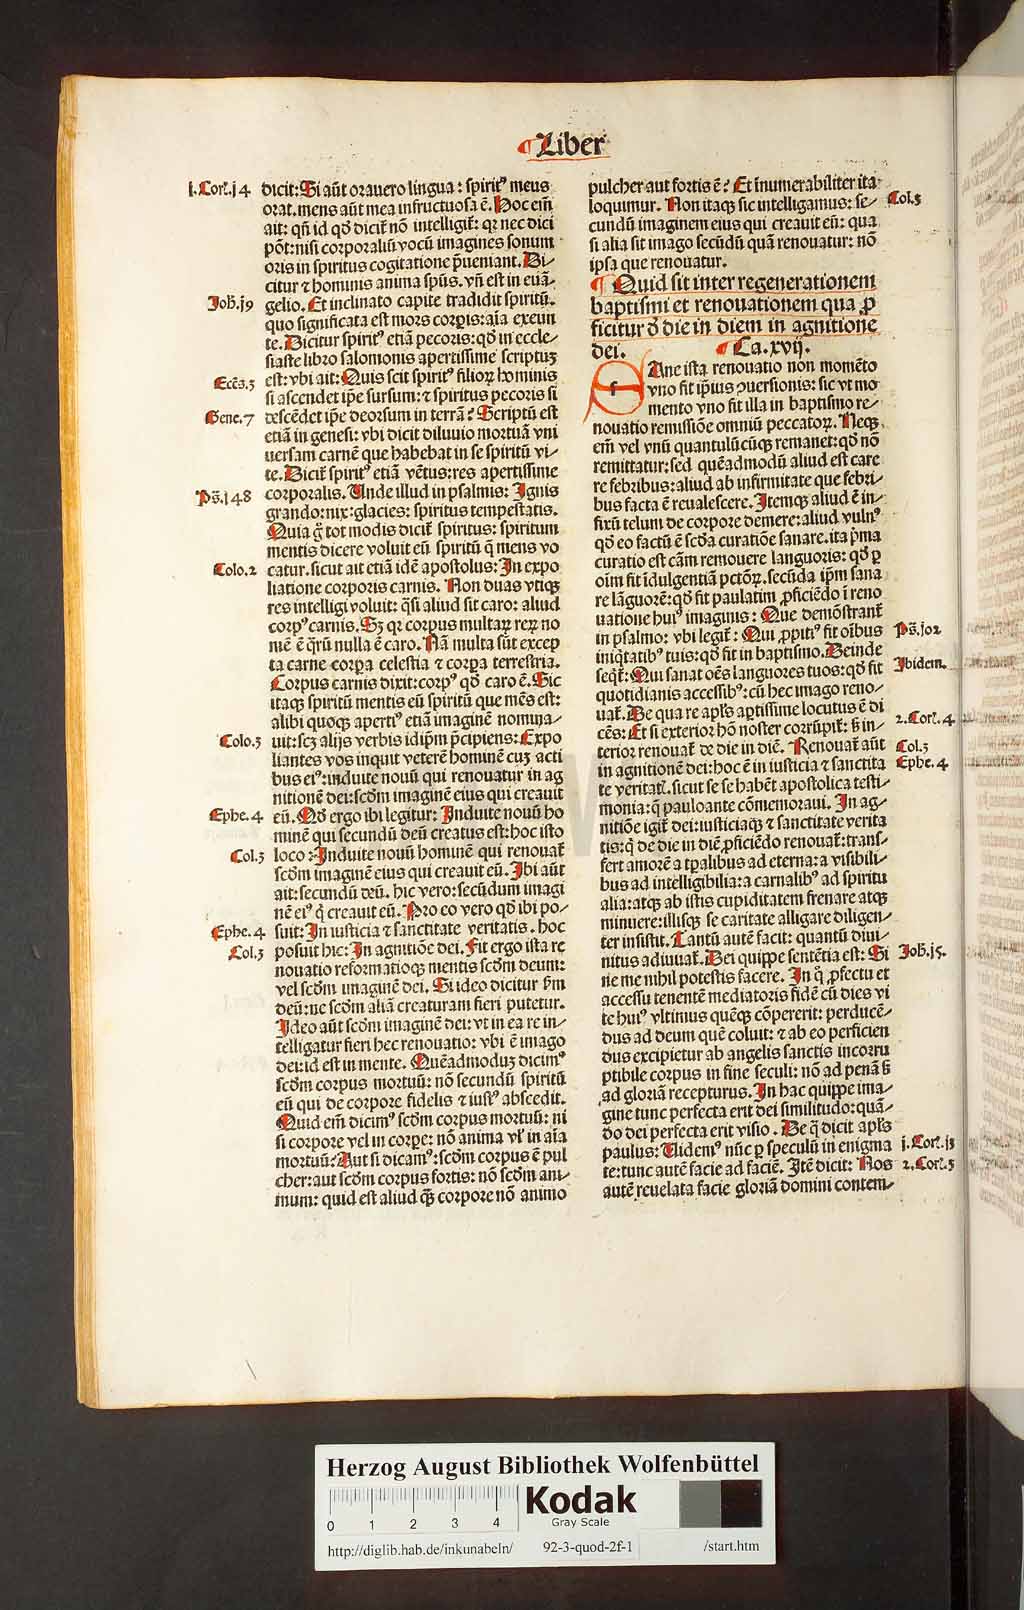 ¶Liber
j.Corī.j4
dicit: Si aūt orauero lingua: spiritꝰ meus
orat. mens aūt mea infructuosa ē. Hoc eīm
ait: qn̄ id qd̄ dicit̄ nō intelligit̄: qr nec dici
pōt: nisi corporaliū vocū imagines sonum
oris in spiritus cogitatione p̄ueniant. Di⸗
citur ⁊ hominis anima spūs. vn̄ est in euā⸗
Joh̄.j9
gelio. Et inclinato capite tradidit spiritū.
quo significata est mors corpꝑis: aīa exeun
te. Dicitur spiritꝰ etiā pecoris: qd̄ in eccle⸗
siaste libro salomonis apertissime scriptuʒ
Eccēs.3
est: vbi ait: Quis scit spiritꝰ filioꝝ hominis
si ascendet ip̄e sursum: ⁊ spiritus pecoris si
Gene.7
descēdet ip̄e deorsum in terrā? Scriptū est
etiā in genesi: vbi dicit diluuio mortuā vni
uersam carnē que habebat in se spiritū vi⸗
te. Dicit̄ spiritꝰ etiā vētus: res apertissime
Ps̄.j48
corporalis. Unde illud in psalmis: Ignis
grando: nix: glacies: spiritus tempestatis.
Quia g̊ tot modis dicit̄ spiritus: spiritum
mentis dicere voluit eū spiritū q̄ mens vo
Colo.2
catur. sicut ait etiā idē apostolus: In expo
liatione corporis carnis. Non duas vtiqꝫ
res intelligi voluit: q̄si aliud sit caro: aliud
corpꝰ carnis. Sʒ qr corpus multaꝝ reꝝ no
mē ē q̄rū nulla ē caro. Nā multa sūt excep
ta carne corpa celestia ⁊ corpa terrestria.
Corpus carnis dixit: corpꝰ qd̄ caro ē. Sic
itaqꝫ spiritū mentis eū spiritū que mēs est:
alibi quoqꝫ apertiꝰ etiā imaginē nomina⸗
Colo.3
uit: scʒ alijs verbis idip̄m p̄cipiens: Expo
liantes vos inquit veterē hominē cuʒ acti
bus eiꝰ: induite nouū qui renouatur in ag
nitionē dei: scd̄m imaginē eius qui creauit
Ephe.4
eū. Qd̄ ergo ibi legitur: Induite nouū ho
minē qui secundū deū creatus est: hoc isto
Col.3
loco: Induite nouū hominē qui renouat̄
scd̄m imaginē eius qui creauit eū. Ibi aūt
ait: secundū deū. hic vero: secūdum imagi
nē eiꝰ q̇ creauit eū. Pro eo vero qd̄ ibi po⸗
Ephe.4
suit: In iusticia ⁊ sanctitate veritatis. hoc
Col.3
posuit hic: In agnitiōe dei. Fit ergo ista re
nouatio reformatioqꝫ mentis scd̄m deum:
vel scd̄m imaginē dei. Si ideo dicitur scd̄m
deū: ne scd̄m aliā creaturam fieri putetur.
Ideo aūt scd̄m imaginē dei: vt in ea re in⸗
telligatur fieri hec renouatio: vbi ē imago
dei: id est in mente. Quēadmoduʒ dicimꝰ
scd̄m corpus mortuū: nō secundū spiritū
eū qui de corpore fidelis ⁊ iustꝰ abscedit.
Quid eīm dicimꝰ scd̄m corpus mortuū: ni
si corpore vel in corpe: nō anima vl̄ in aīa
mortuū? Aut si dicamꝰ: scd̄m corpus ē pul
cher: aut scd̄m corpus fortis: nō scd̄m ani⸗
mum: quid est aliud q̄ꝫ corpore nō animo
pulcher aut fortis ē? Et inumerabiliter ita
Col.3
loquimur. Non itaqꝫ sic intelligamus: se⸗
cundū imaginem eius qui creauit eū: qua
si alia sit imago secūdū quā renouatur: nō
ipsa que renouatur.
¶ Quid sit inter regenerationem
baptismi et renouationem qua ꝓ
ficitur d̄ die in diem in agnitione
dei. ¶Ca.xvij.
f Ane ista renouatio non momēto
vno fit ip̄ius ꝯuersionis: sic vt mo
mento vno fit illa in baptismo re⸗
nouatio remissiōe omniū peccatoꝝ. Neqꝫ
eīm vel vnū quantulūcūqꝫ remanet: qd̄ nō
remittatur: sed quēadmodū aliud est care
re febribus: aliud ab infirmitate que febri⸗
bus facta ē reualescere. Itemqꝫ aliud ē in⸗
fixū telum de corpore demere: aliud vulnꝰ
qd̄ eo factū ē scd̄a curatiōe sanare. ita p̄ma
curatio est cām remouere languoris: qd̄ ꝑ
oīm fit indulgentiā pctōꝝ. secūda ip̄m sana
re lāguorē: qd̄ fit paulatim ꝓficiēdo ī reno
uatione huiꝰ imaginis: Que demōstrant̄
Ps̄.jo2
in psalmo: vbi legit̄: Qui ꝓpitiꝰ fit oībus
iniq̇tatibꝰ tuis: qd̄ fit in baptismo. Deinde
Ibidem.
seqt̄: Qui sanat oēs languores tuos: qd̄ fit
quotidianis accessibꝰ: cū hec imago reno⸗
2.Corī.4
uat̄. De qua re apl̄s aꝑtissime locutus ē di
cēs: Et si exterior hō noster corrūpit̄: s̄ in⸗
Col.3
terior renouat̄ de die in diē. Renouat̄ aūt
Ephe.4
in agnitionē dei: hoc ē in iusticia ⁊ sanctita
te veritat̄. sicut se se habēt apostolica testi⸗
monia: q̄ pauloante cōmemoraui. In ag⸗
nitiōe igit̄ dei: iusticiaqꝫ ⁊ sanctitate verita
tis: q̇ de die in diē ꝓficiēdo renouat̄: trans⸗
fert amorē a tꝑalibus ad eterna: a visibili⸗
bus ad intelligibilia: a carnalibꝰ ad spiritu
alia: atqꝫ ab istis cupiditatem frenare atqꝫ
minuere: illisqꝫ se caritate alligare diligen⸗
ter insistit. Tantū autē facit: quantū diui⸗
Joh̄.j5.
nitus adiuuat̄. Dei quippe sentētia est: Si
ne me nihil potestis facere. In q̊ ꝓfectu et
accessu tenentē mediatoris fidē cū dies vi
te huiꝰ vltimus quēqꝫ cōpererit: perducē⸗
dus ad deum quē coluit: ⁊ ab eo perficien
dus excipietur ab angelis sanctis incorru
ptibile corpus in fine seculi: nō ad penā s̄
ad gloriā recepturus. In hac quippe ima⸗
gine tunc perfecta erit dei similitudo: quā⸗
do dei perfecta erit visio. De q̄ dicit apl̄s
j.Corī.j3
paulus: Uidemꝰ nūc ꝑ speculū in enigma
2.Corī.3
te: tunc autē facie ad faciē. Itē dicit: Nos
autē reuelata facie gloriā domini contem⸗
Herzog August Bibliothek Wolfenbüttel
0 1 2 3 4
Kodak
Gray Scale
http://diglib.hab.de/inkunabeln/ 92-3-quod-2f-1 /start.htm